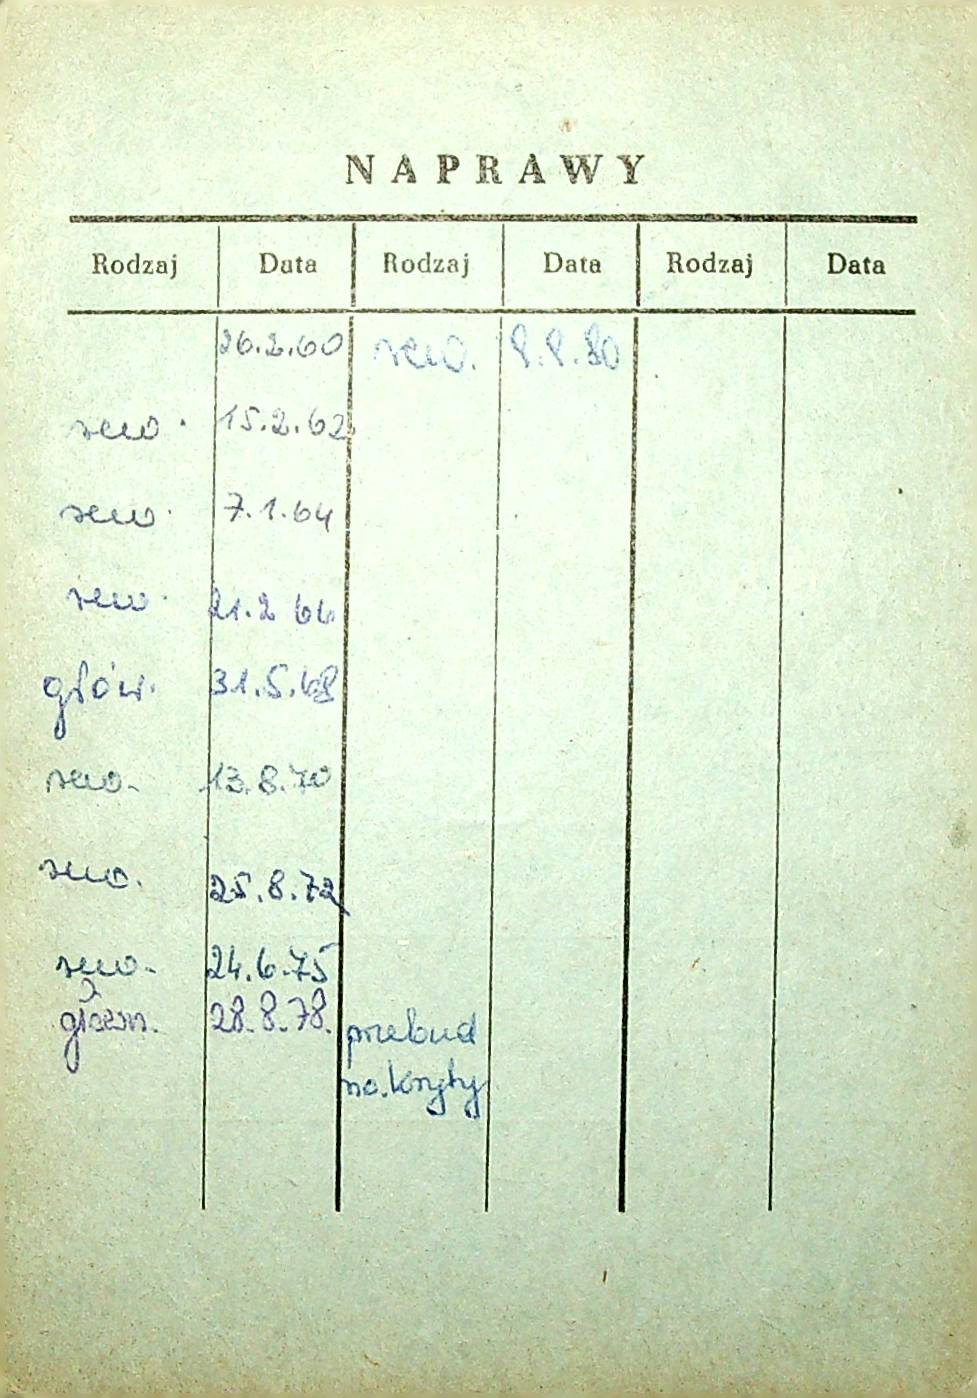 NAPRAWY
Rodzaj Data Rodzaj Data Rodzaj Data
26.2.60 rew. 8.8.80
rew. 15.2.62
rew. 7.1.64
rew. 21.2 66
głów. 31.5.68
rew. 13.8.70
rew. 25.8.72
rew. 24.6.75
główn. 28.8.78. przebud
na.kryty